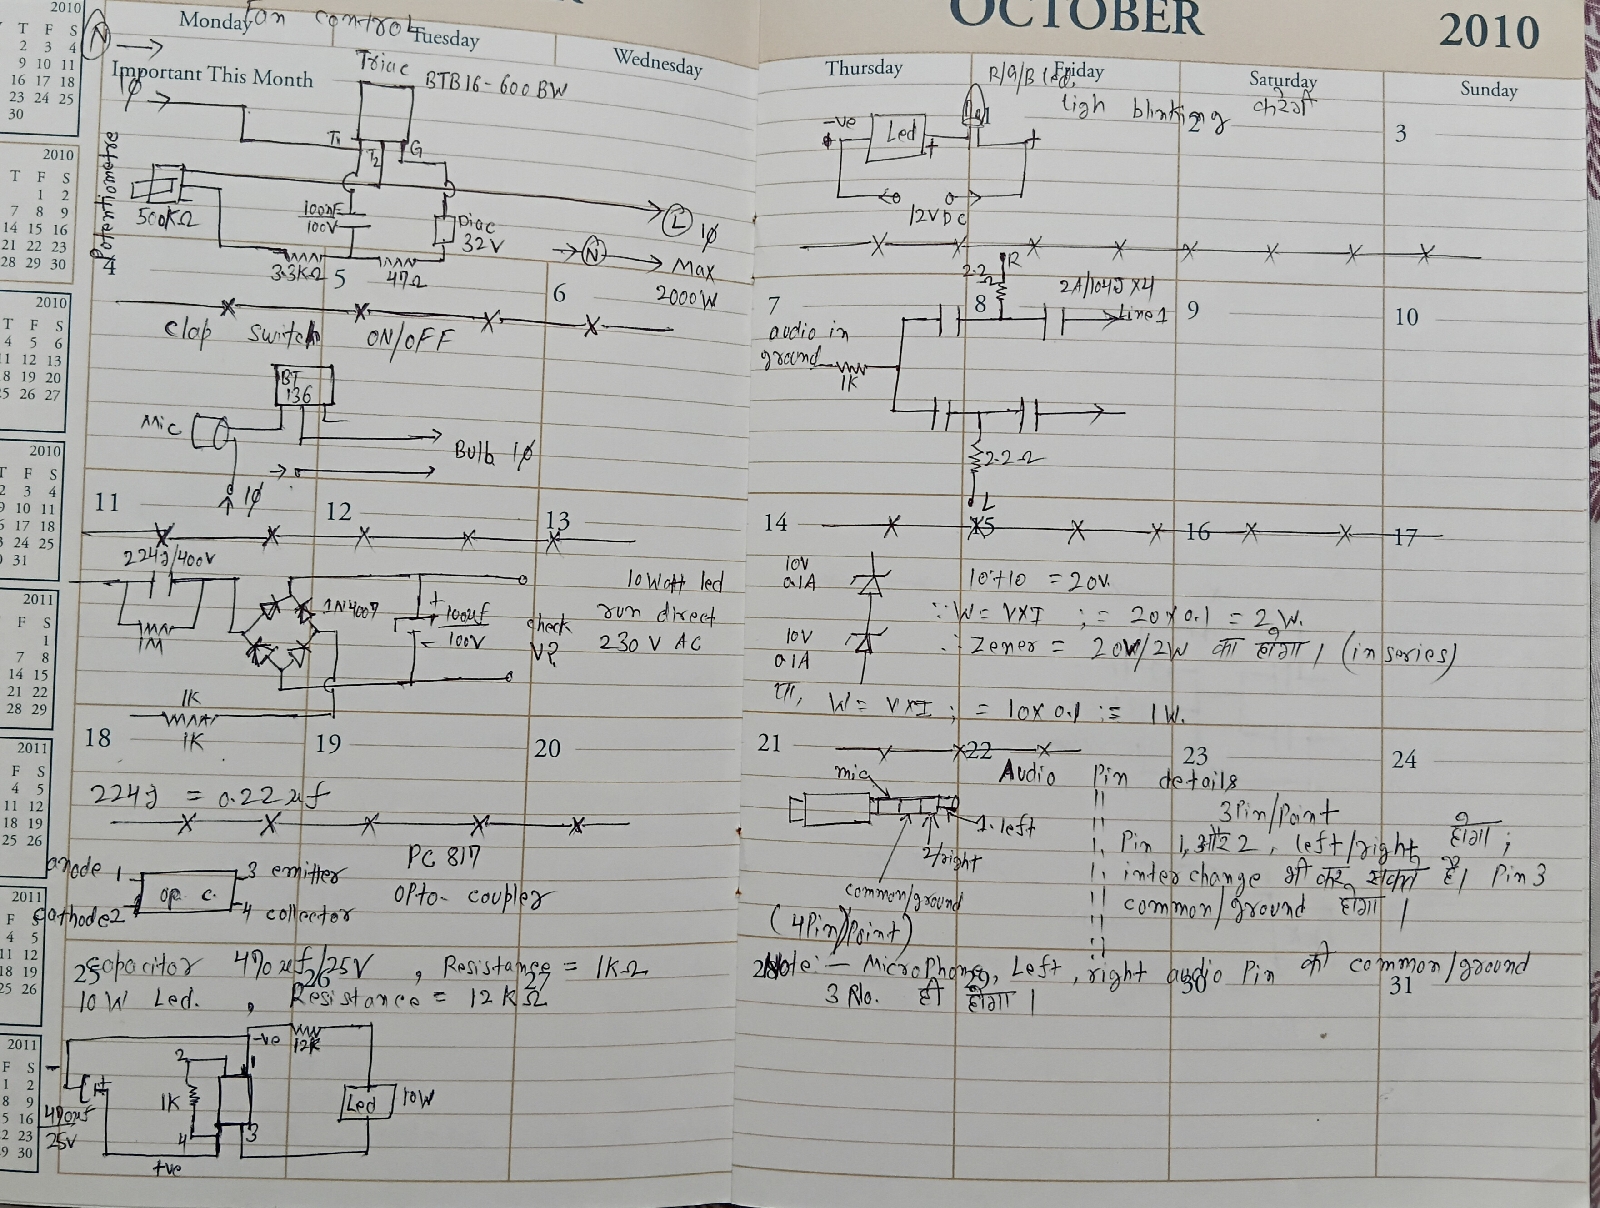 OCTOBER
2010
Monday
Tuesday
Wednesday
Thursday
Friday
Saturday
Sunday
Important This Month
Fan control
N
1φ
Triac
BTB16-600BW
T1
T2
G
Potentiometer
500KΩ
100nF
100V
Diac
32V
L 1φ
N
Max
2000W
3.3KΩ
47Ω
4
5
6
clap switch ON/OFF
BT
136
Mic
Bulb 1φ
1φ
11
12
13
224J/400V
1M
1N4007
+
100uf
100V
-
check
V?
10Watt led
run direct
230 V AC
1K
1K
18
19
20
224J = 0.22uf
anode 1
3 emitter
op. c.
cathode 2
4 collector
PC 817
opto-coupler
25
26
27
capacitor 470uf/25V , Resistance = 1KΩ
10W Led. , Resistance = 12KΩ
-ve
12K
2
1
1K
4
3
470uf
25V
+ve
Led
10W
R/G/B led
ligh blinking करेगी
2
3
-ve
Led
+
+
12VDC
7
8
9
10
R
2.2Ω
2A/104J x4
Line1
audio in
ground
1K
2.2Ω
L
14
15
16
17
10V
0.1A
10+10 = 20V.
∵ W = VXI ; = 20x0.1 = 2W.
10V
0.1A
∴ Zener = 20V/2W का होगा। (in series)
या, W = VXI ; = 10x0.1 := 1W.
21
22
23
24
mic
1.left
2/right
common/ground
(4Pin/Point)
Audio Pin details
3Pin/Point
Pin 1, और 2, left/right होगा ;
interchange भी कर सकते है। Pin 3
common/ground होगा।
28
29
30
31
Note:- Microphone, Left, right audio Pin की common/ground
3 No. ही होगा।
2010
T F S
2 3 4
9 10 11
16 17 18
23 24 25
30
2010
T F S
1 2
7 8 9
14 15 16
21 22 23
28 29 30
2010
T F S
4 5 6
11 12 13
18 19 20
25 26 27
2010
T F S
2 3 4
9 10 11
16 17 18
23 24 25
30 31
2011
F S
1
7 8
14 15
21 22
28 29
2011
F S
4 5
11 12
18 19
25 26
2011
F S
4 5
11 12
18 19
25 26
2011
F S
1 2
8 9
15 16
22 23
29 30